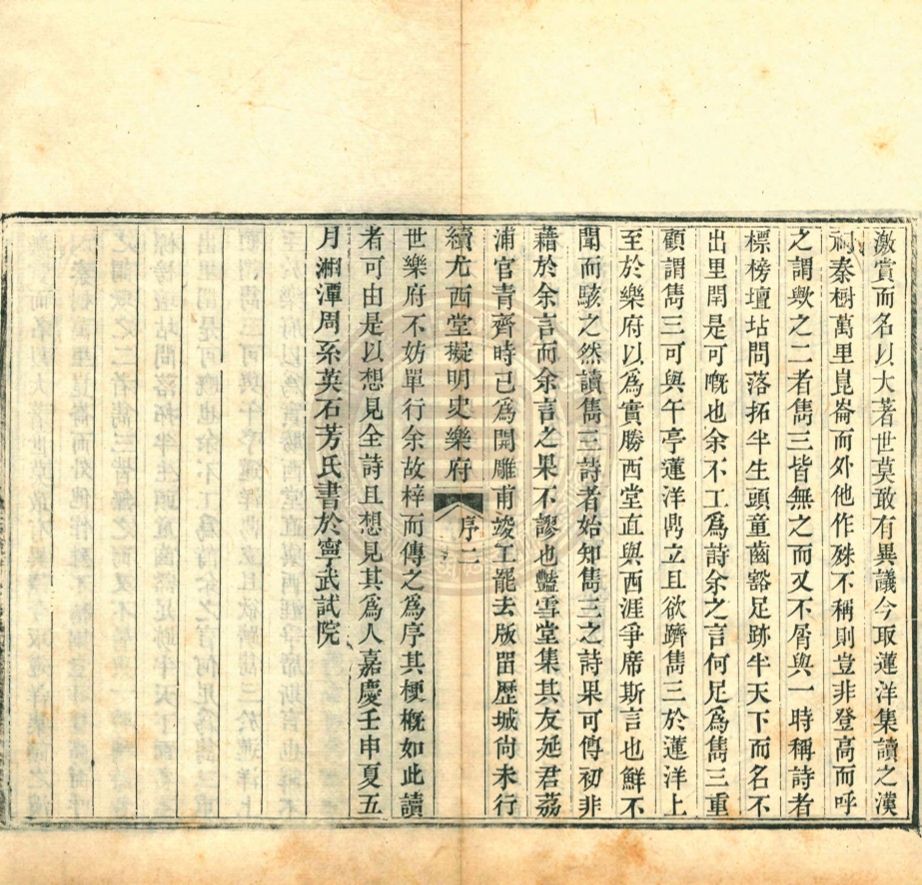 激賞而名以大著世莫敢有異議今取蓮洋集讀之漢
祠秦樹萬里崑崙而外他作殊不稱則豈非登高而呼
之謂歟之二者雋三皆無之而又不屑與一時稱詩者
標榜壇坫問落拓半生頭童齒豁足跡半天下而名不
出里閈是可嘅也余不工爲詩余之言何足爲雋三重
顧謂雋三可與午亭蓮洋鼎立且欲躋雋三於蓮洋上
至於樂府以爲實勝西堂直與西涯爭席斯言也鮮不
聞而駭之然讀雋三詩者始知雋三之詩果可傳初非
藉於余言而余言之果不謬也豔雪堂集其友延君荔
浦官青齊時已爲開雕甫竣工罷去版畱歷城尙未行
續尤西堂擬明史樂府 序 二
世樂府不妨單行余故梓而傳之爲序其梗概如此讀
者可由是以想見全詩且想見其爲人嘉慶壬申夏五
月湘潭周系英石芳氏書於寧武試院